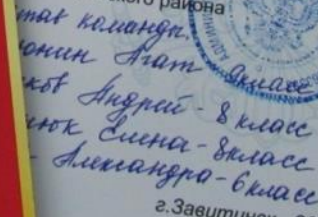 ского района
став команды
онин Агат 9 класс
ков Андрей - 8 класс
нюк Елена - 8 класс
- Александра - 6 класс
г.Завитинс